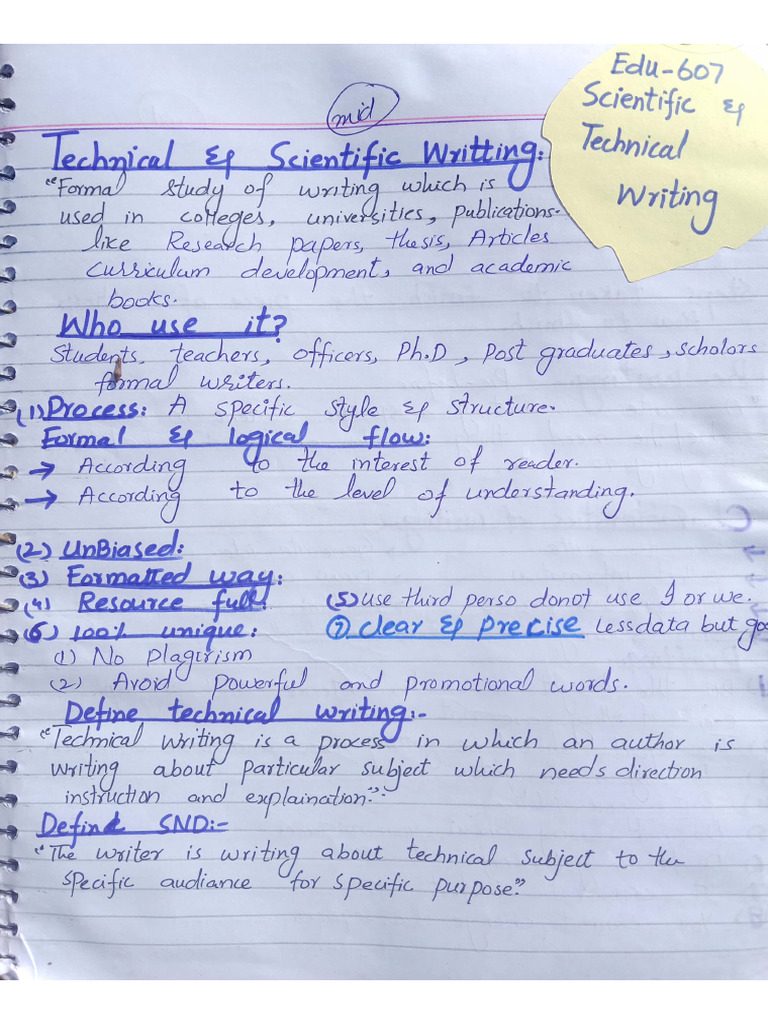 mid
Edu-607
Scientific &
Technical
Writing
Technical & Scientific Writting:
"Formal study of writing which is
used in colleges, universities, publications.
like Research papers, thesis, Articles
curriculum development, and academic
books.
Who use it?
Students, teachers, officers, Ph.D, Post graduates, scholors
formal writers.
(1) Process: A specific style & structure.
Formal & logical flow:
→ According to the interest of reader.
→ According to the level of understanding.
(2) UnBiased:
(3) Formatted way:
(4) Resource full: (5) use third perso donot use I or we.
(6) 100% unique: (7) clear & precise Less data but
(1) No plagirism
(2) Avoid powerful and promotional words.
Define technical writing:-
"Technical writing is a process in which an author is
writing about particular subject which needs direction
instruction and explaination".
Define SND:-
"The writer is writing about technical subject to the
specific audiance for specific purpose."